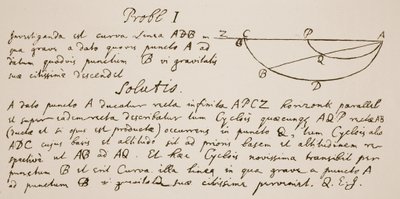 Probl I
Investiganda est curva Linea ADB in
qua grave a dato quovis puncto A ad
datum quodvis punctum B vi gravitatis
suæ citissime descendet
Z C P A
B Q
D
Solutio.
A dato puncto A ducatur recta infinita APCZ horizonti parallela
et super eadem recta describatur tum Cyclois quæcunque AQP rectæ AB
(ductæ et si opus est productæ) occurrens in puncto Q, tum Cyclois alia
ADC cujus basis et altitudo sit ad prioris basem et altitudinem re-
spective ut AB ad AQ. Et hæc Cyclois novissima transibit per
punctum B et erit Curva illa linea in qua grave a puncto A
ad punctum B vi gravitatis suæ citissime perveniet. Q.E.I.